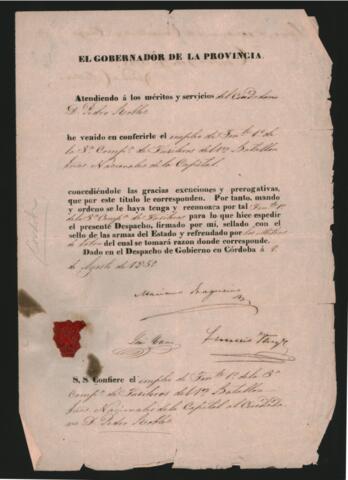 EL GOBERNADOR DE LA PROVINCIA.
Atendiendo á los méritos y servicios del Ciudadano
D. Pedro Robles
he venido en conferirle el empleo de Ten.te 1.º de
la 3.ª Comp.ª de Fusileros del 1.er Batallon
Nacionales de la Capital
concediéndole las gracias exenciones y prerogativas,
que por este título le corresponden. Por tanto, mando
y ordeno se le haya tenga y reconozca por tal Ten.te 1.º
de la 3.ª Comp.ª de Fusileros para lo que hice espedir
el presente Despacho, firmado por mi, sellado con el
sello de las armas del Estado y refrendado por
del cual se tomará razon donde corresponde.
Dado en el Despacho de Gobierno en Córdoba á
de Agosto de 185
S. S. Confiere el empleo de Ten.te 1.º de la 3.ª
Comp.ª de Fusileros del 1.er Batallon
Nacionales de la Capital al Ciudada
no D. Pedro Robles